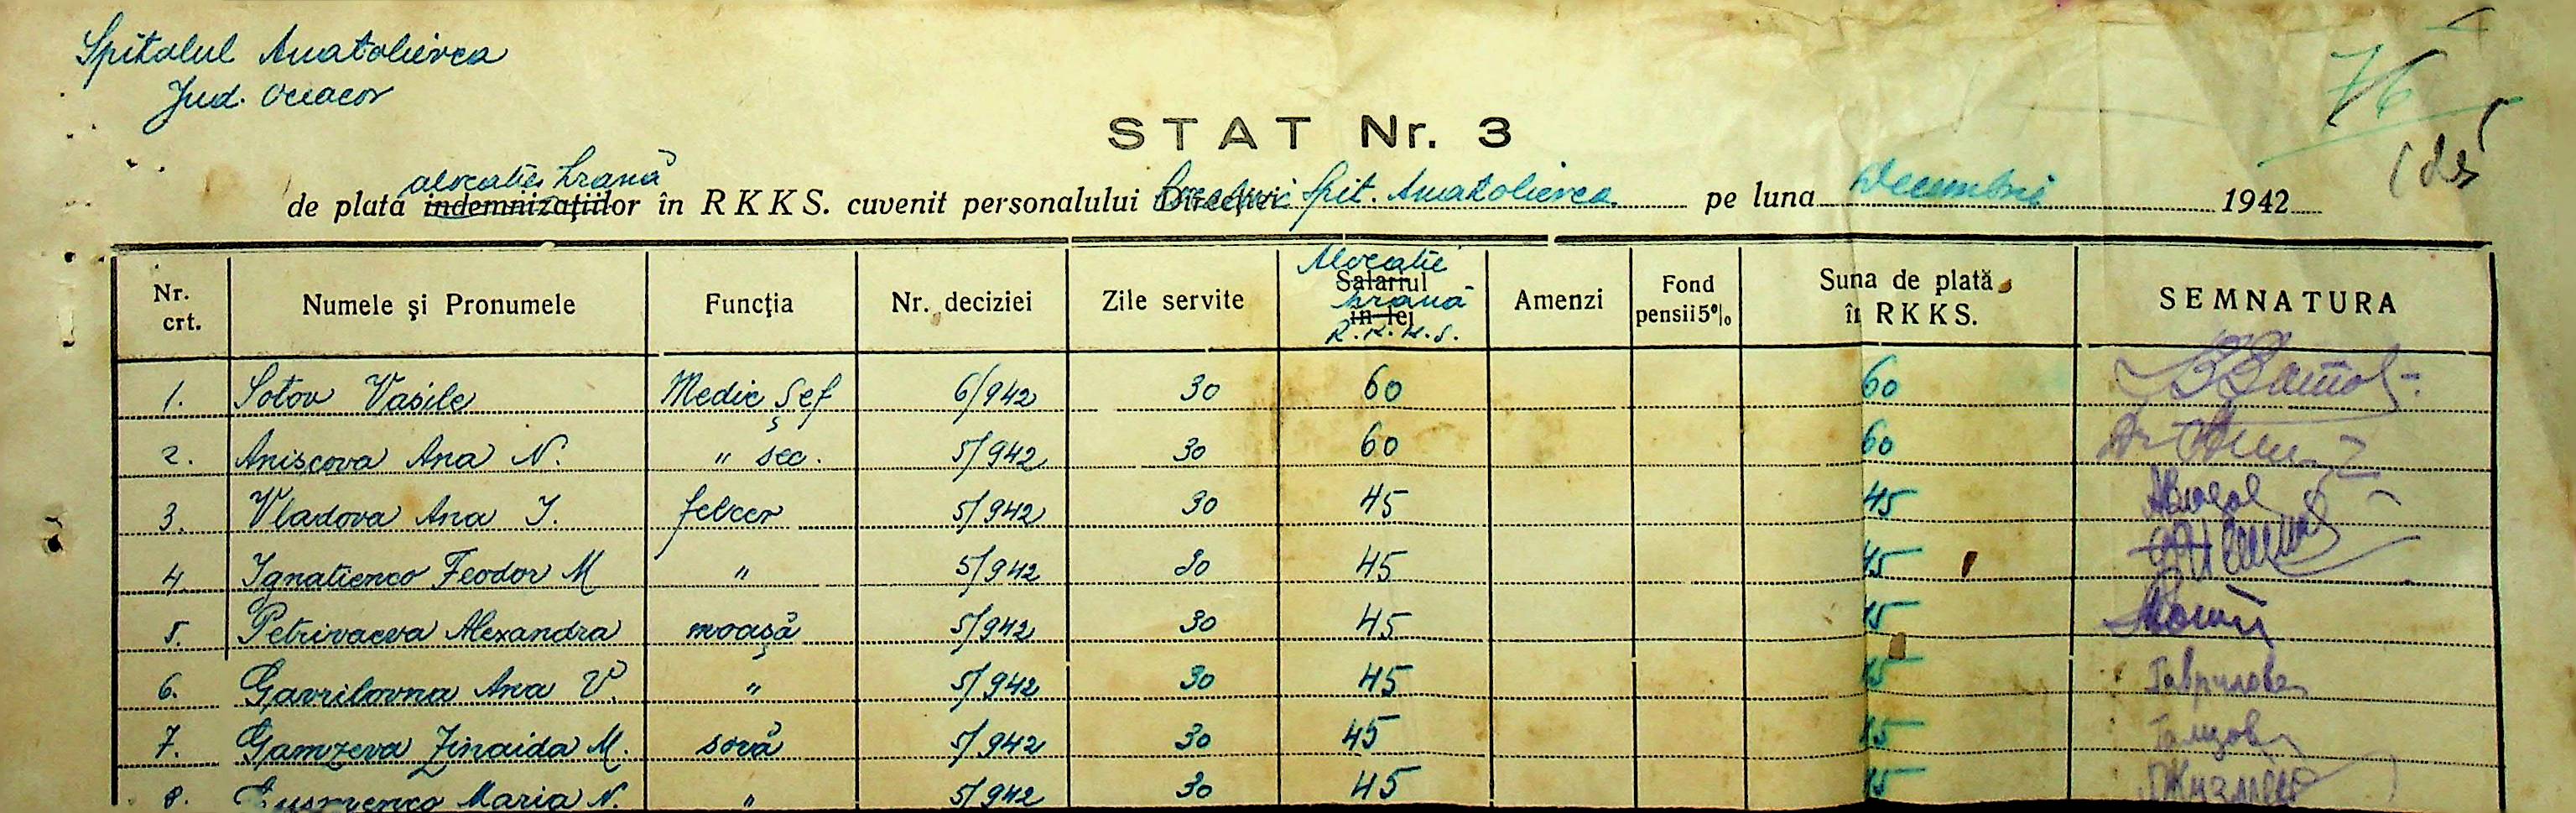 Spitalul Anatolievca
Jud. Oceacov
76
STAT Nr. 3
alocatiei hrană
de plată indemnizațiilor în RKKS. cuvenit personalului Direcției Spit. Anatolievca pe luna Decembrie 1942
Nr. crt. Numele și Pronumele Funcția Nr. deciziei Zile servite Alocatie Salariul hrană in lei R.K.K.S. Amenzi Fond pensii 5% Suna de plată în RKKS. SEMNATURA
1. Sotov Vasile Medic Șef 6/942 30 60 60
2. Aniscova Ana N. " sec. 5/942 30 60 60
3. Vladova Ana I. felcer 5/942 30 45 45
4. Ignatienco Feodor M " 5/942 30 45 45
5. Petrivaeva Alexandra moașă 5/942 30 45 45
6. Gavrilovna Ana V. " 5/942 30 45 45 Гаврилова
7. Gamzeva Zinaida M. soră 5/942 30 45 45
8. Maria N. " 5/942 30 45 45